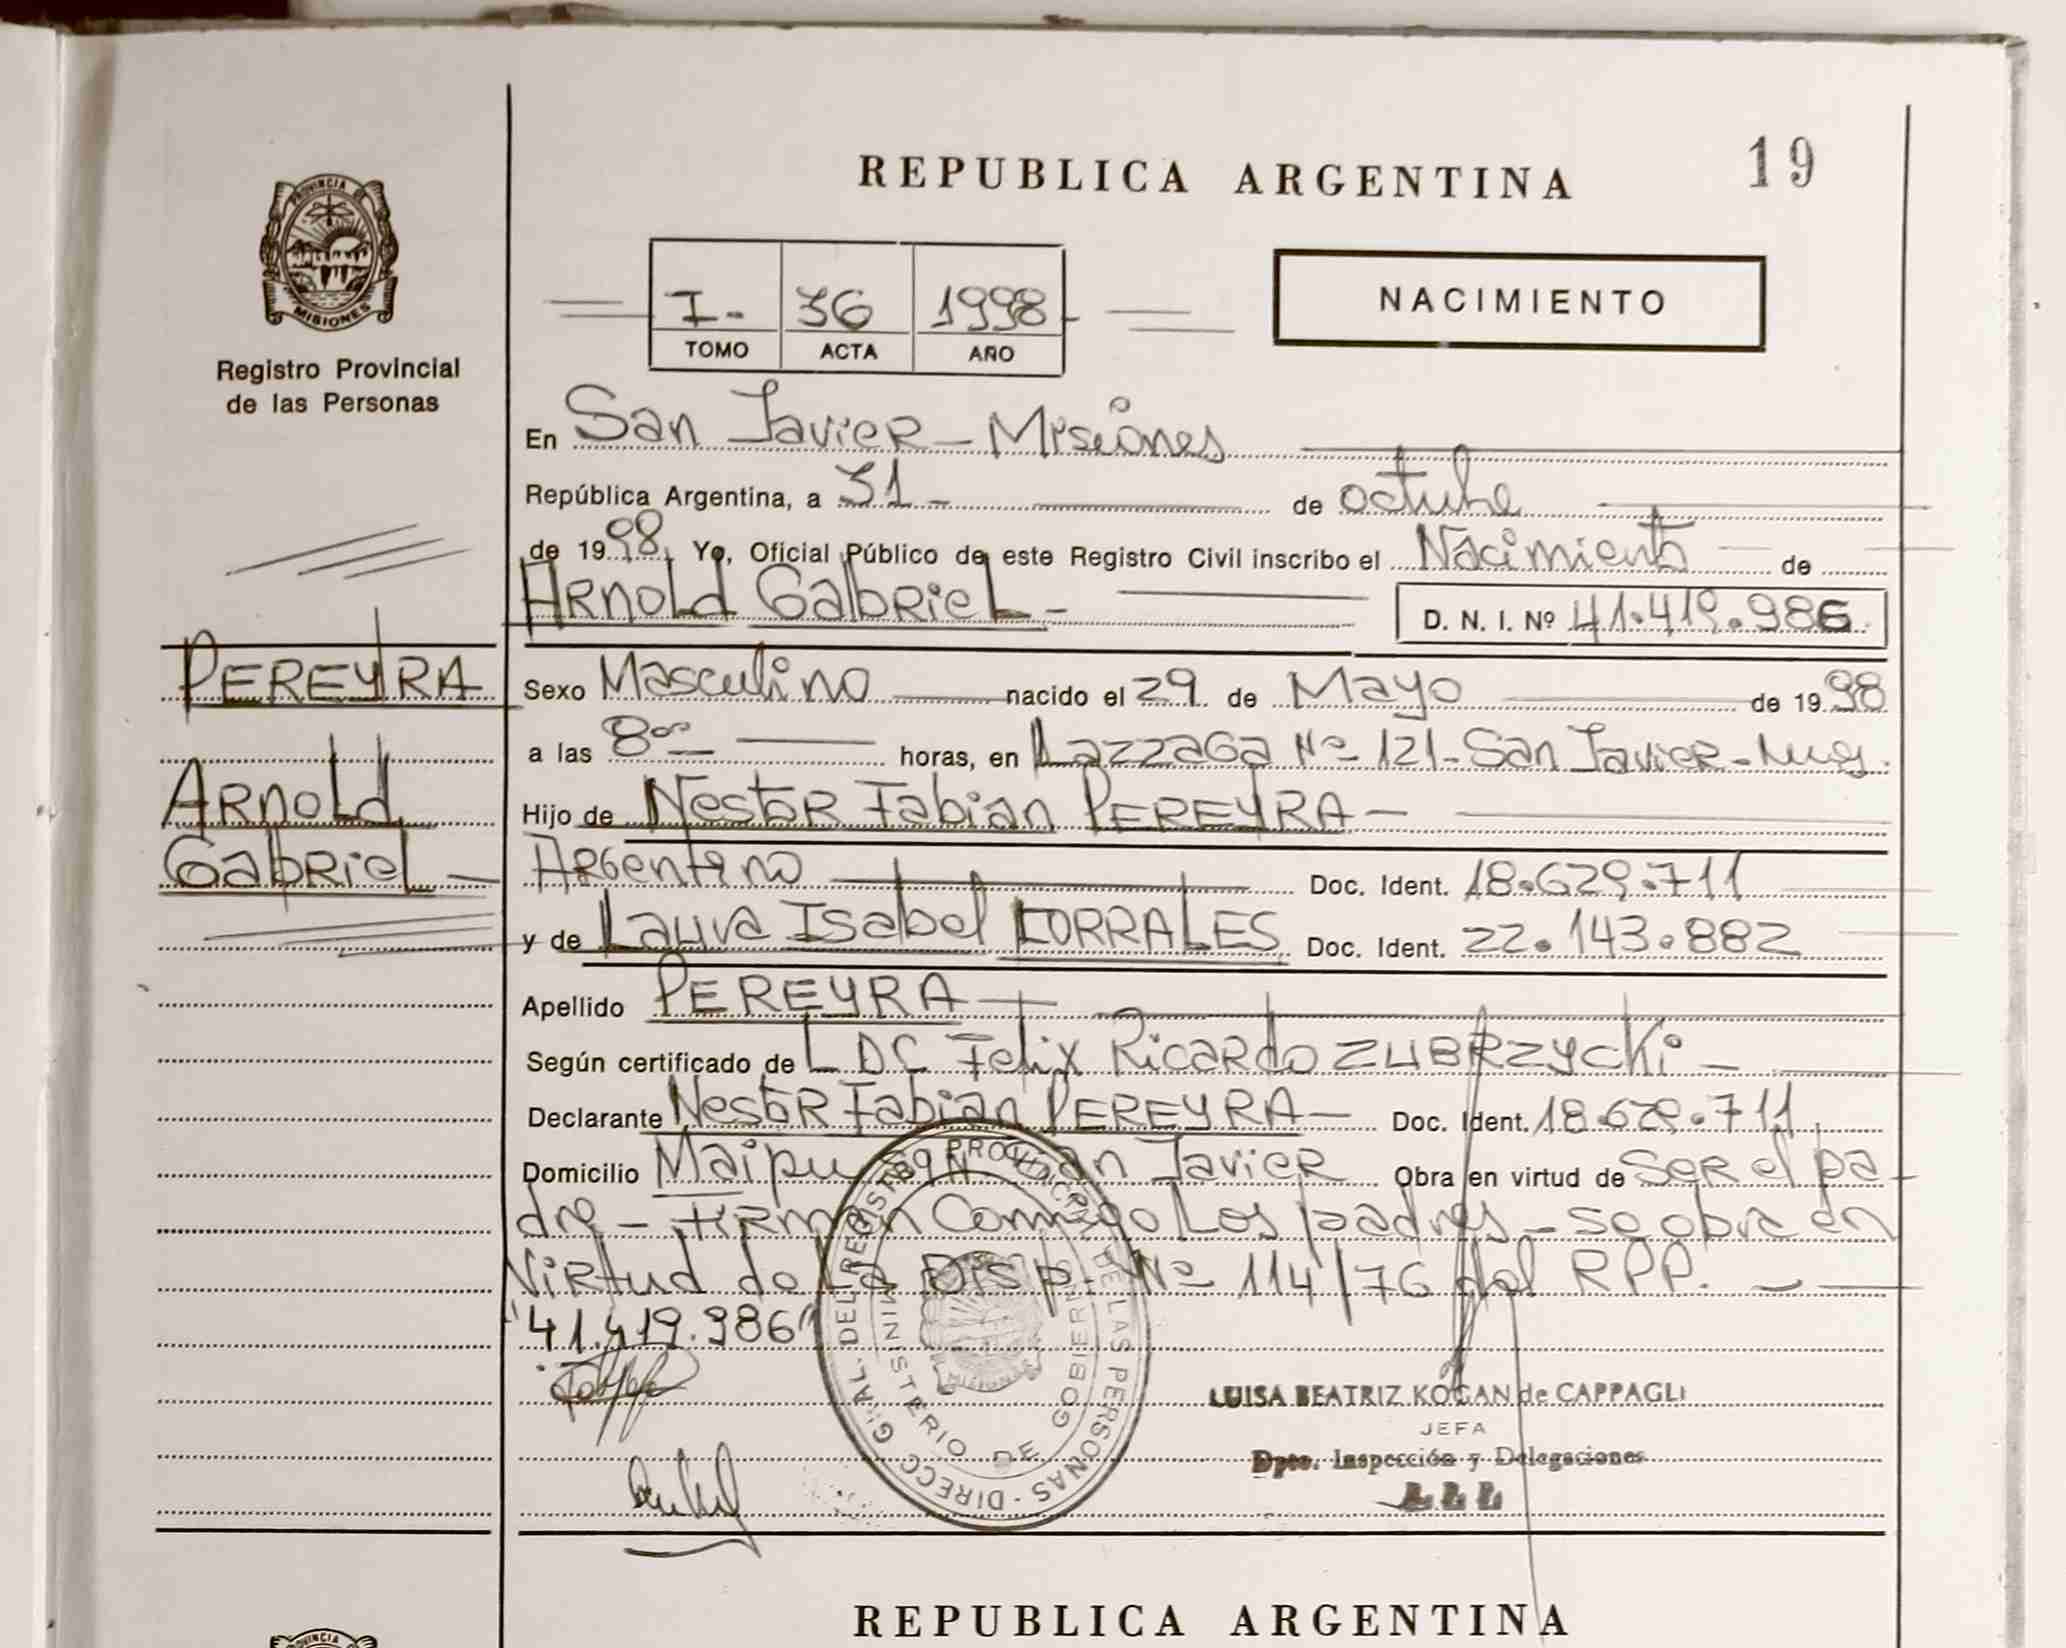 REPUBLICA ARGENTINA
19
PROVINCIA DE
MISIONES
Registro Provincial
de las Personas
I- 36 1998
TOMO ACTA AÑO
NACIMIENTO
En San Javier - Misiones
República Argentina, a 31 - de octubre
de 1998. Yo, Oficial Público de este Registro Civil inscribo el Nacimiento de
Arnold Gabriel - D. N. I. Nº 41.419.986
PEREYRA
Arnold
Gabriel -
Sexo Masculino nacido el 29 de Mayo de 1998
a las 8°° horas, en Lazzaga Nº 121 - San Javier - Mnes.
Hijo de Nestor Fabian PEREYRA -
Argentino Doc. Ident. 18.629.711
y de Laura Isabel CORRALES Doc. Ident. 22.143.882
Apellido PEREYRA -
Según certificado de LDC Felix Ricardo ZUBRZYCKi -
Declarante Nestor Fabian PEREYRA - Doc. Ident. 18.629.711
Domicilio Maipu San Javier Obra en virtud de Ser el pa-
dre - Firman Conmigo Los padres - se obra en
Virtud de la Disp. Nº 114/76 del RPP. -
"41.419.986"
DIRECC GRAL. DEL REGISTRO PROVINCIAL DE LAS PERSONAS
MINISTERIO DE GOBIERNO
LUISA BEATRIZ KOGAN de CAPPAGLI
JEFA
Dpto. Inspección y Delegaciones
REPUBLICA ARGENTINA
PROVINCIA DE